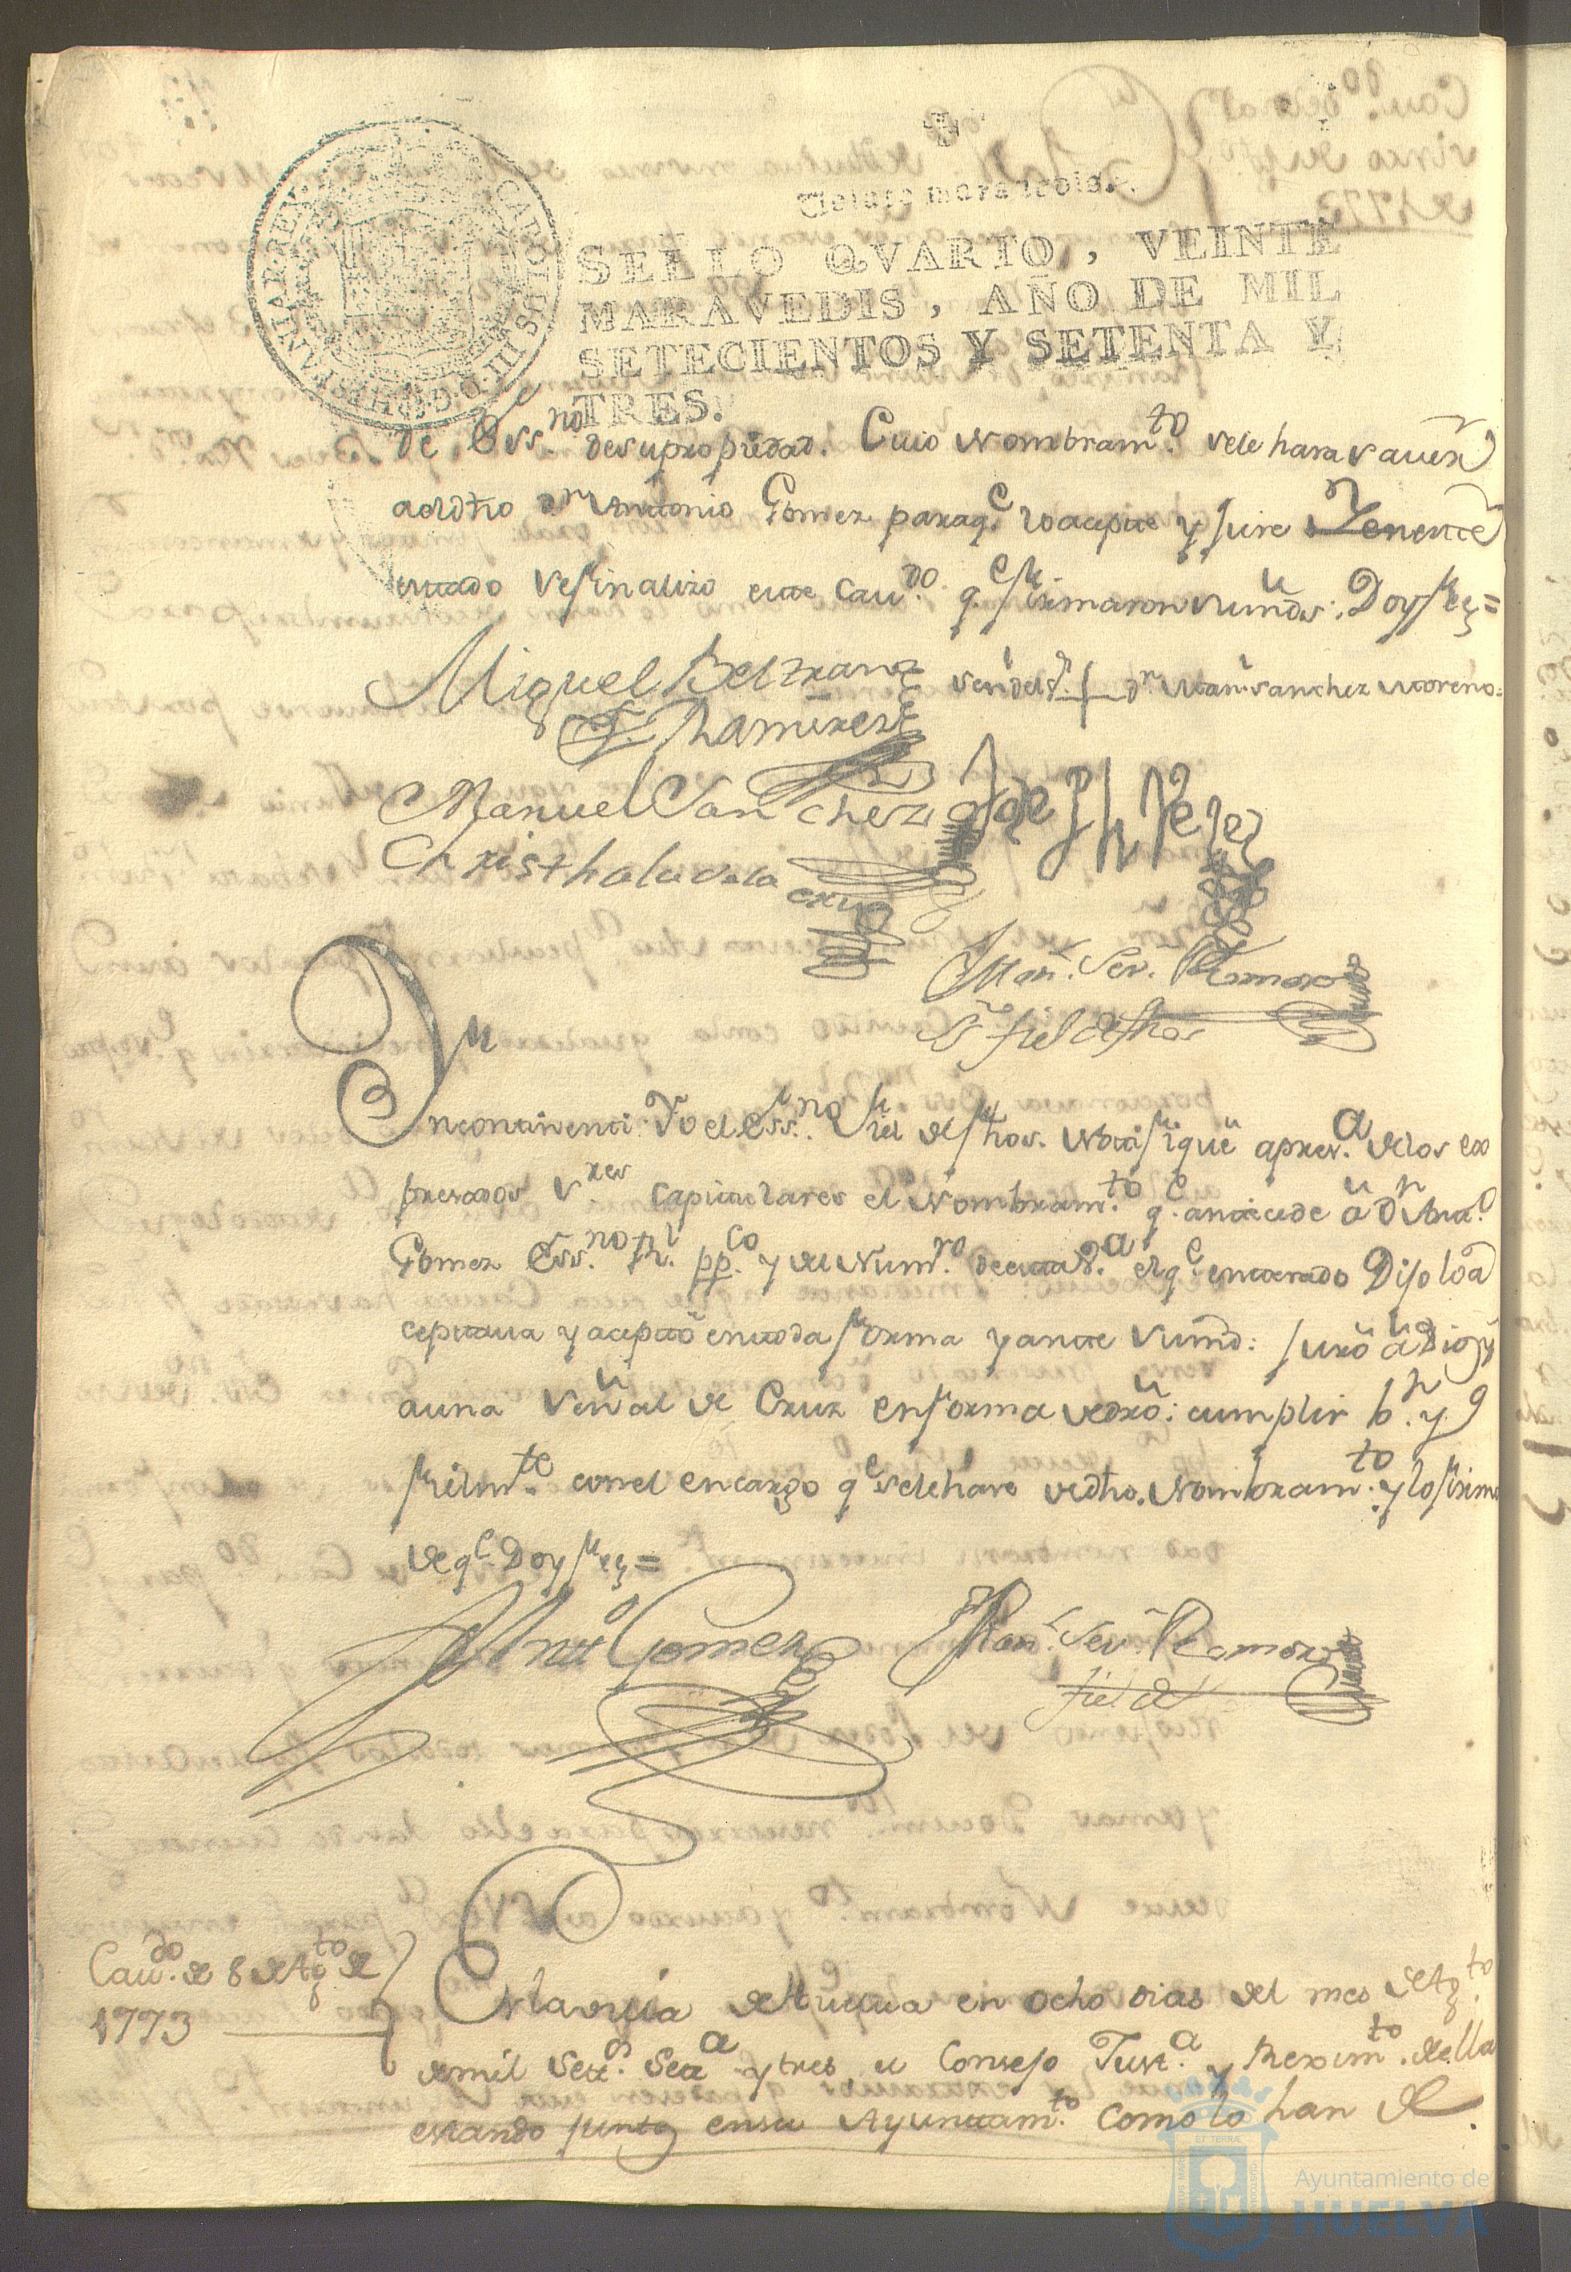 Veinte maravedis.
SELLO QVARTO, VEINTE
MARAVEDIS, AÑO DE MIL
SETECIENTOS Y SETENTA Y
TRES.
CAROLUS III D G HISPANIAR REX
de Ess.no de su propiedad. Cuio Nombram.to se le hara saver
a el dho Dn Antonio Gomez para q.e lo acepte y jure
estado se finalizo este Cav.do q.e firmaron sus mds. Doy fee=
Miguel Beltran
F. Ramirez
Dn Man.l Sanchez Moreno=
Manuel Sanchez
Jph Perez
Christhal de la
Cruz
Man.l Sev.no Romero
SS.no fiel de fhos
Yncontinenti Yo el Ess.no fiel de fhos. Notifiqué a pres.a de los ex
presados S.res Capitulares el Nombram.to q.e antecede a Dn Ant.o
Gomez Ess.no Rl. pp.co y del Num.ro de esta V.a el q.e enterado Dijo lo a
ceptava y aceptó en toda forma y ante sus mds: juró a Dios y
a una señal de Cruz en forma de dro: cumplir b.n y
fielm.te con el encargo q.e se le hace de dho. Nombram.to y lo firmó
de q.e Doy fee=
Ant.o Gomez
Man.l Sev.no Romero
fiel de
Cav.do de 8 de Ag.to de
1773
En la villa de Huelva en ocho dias del mes de Ag.to
de mil Sete.s Sete.a y tres el Consejo Just.a y Rexim.to de ella
estando juntos en su Ayuntam.to como lo han de
Ayuntamiento de
HUELVA